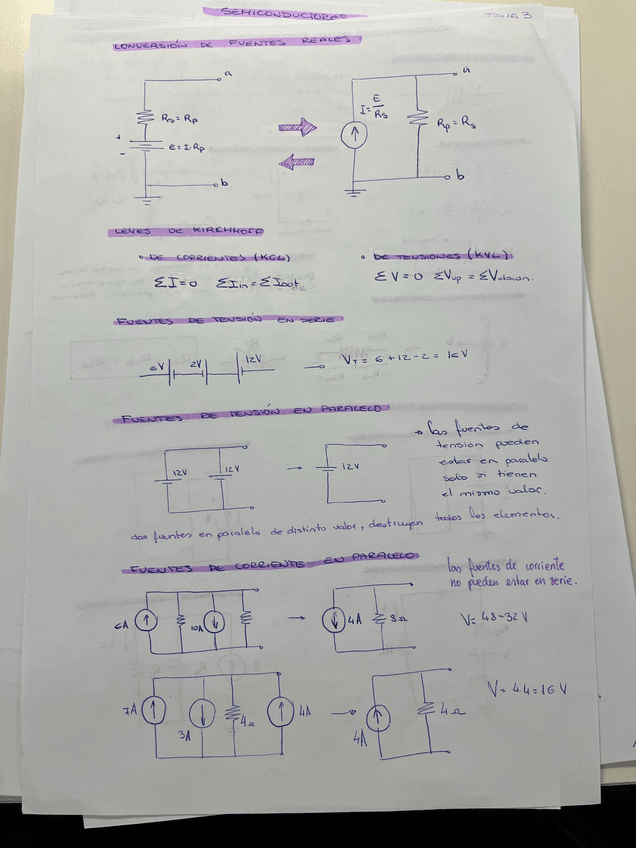 SEMICONDUCTORES
TEMA 3
CONVERSIÓN DE FUENTES REALES
a
Rs = Rp
+
-
e = I·Rp
b
a
I = E/Rs
Rp = Rs
b
LEYES DE KIRCHHOFF
• DE CORRIENTES (KCL)
ΣI = 0 ΣIin = ΣIout
• DE TENSIONES (KVL)
ΣV = 0 ΣVup = ΣVdown.
FUENTES DE TENSIÓN EN SERIE
6V 2V 12V → VT = 6 + 12 - 2 = 16 V
FUENTES DE TENSIÓN EN PARALELO
12V 12V → 12V
→ Las fuentes de
tension pueden
estar en paralelo
solo si tienen
el mismo valor.
dos fuentes en paralelo de distinto valor, destruyen todos los elementos.
FUENTES DE CORRIENTE EN PARALELO
las fuentes de corriente
no pueden estar en serie.
6A 10A → 4A 8Ω
V = 48-32 V
7A 3A 4Ω 4A → 4A 4Ω
V = 4·4 = 16 V